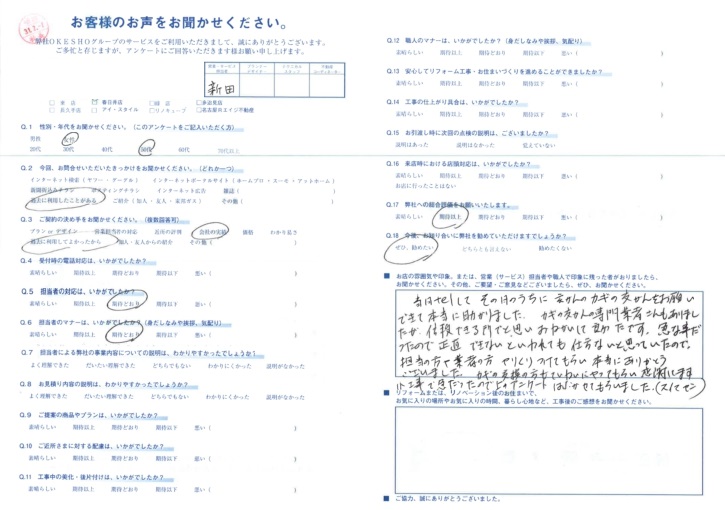 お客様のお声をお聞かせください。
弊社OKESHOグループのサービスをご利用いただきまして、誠にありがとうございます。
ご多忙と存じますが、アンケートにご回答いただきます様お願い申し上げます。
営業・サービス担当者
プランナー
デザイナー
不動産
コンサルタント
新田
□ 本 店 春日井店 □緑 店 □多治見店
□ 長久手店 □ アイ・スタイル □リノキューブ □名古屋ロエイジ不動産
Q.1 性別・年代をお聞かせください。(このアンケートをご記入いただく方)
男性 女性
20代 30代 40代 50代 60代 70代以上
Q.2 今回、お問合せいただいたきっかけをお聞かせください。(どれか一つ)
インターネット検索(ヤフー・グーグル) インターネットポータルサイト(ホームプロ・スーモ・アットホーム)
新聞折込みチラシ ポスティングチラシ インターネット広告 雑誌( )
過去に利用したことがある ご紹介(知人・友人・東邦ガス) その他( )
Q.3 ご契約の決め手をお聞かせください。(複数回答可)
プラン or デザイン 営業担当者の対応 近所の評判 会社の実績 価格 わかり易さ
過去に利用してよかったから 知人・友人からの紹介 その他( )
Q.4 受付時の電話対応は、いかがでしたか?
素晴らしい 期待以上 期待どおり 期待以下 悪い( )
Q.5 担当者の対応は、いかがでしたか?
素晴らしい 期待以上 期待どおり 期待以下 悪い( )
Q.6 担当者のマナーは、いかがでしたか?(身だしなみや挨拶、気配り)
素晴らしい 期待以上 期待どおり 期待以下 悪い( )
Q.7 担当者による弊社の事業内容についての説明は、わかりやすかったでしょうか!
よく理解できた だいたい理解できた どちらでもない わかりにくかった 説明がなかった
Q.8 お見積り内容の説明は、わかりやすかったでしょうか?
よく理解できた だいたい理解できた どちらでもない わかりにくかった 説明がなかった
Q.9 ご提案の商品やプランは、いかがでしたか?
素晴らしい 期待以上 期待どおり 期待以下 悪い( )
Q.10 ご近所さまに対する配慮は、いかがでしたか?
素晴らしい 期待以上 期待どおり 期待以下 悪い( )
Q.11 工事中の美化・後片付けは、いかがでしたか?
素晴らしい 期待以上 期待どおり 期待以下 悪い( )
Q.12 職人のマナーは、いかがでしたか?(身だしなみや挨拶、気配り)
素晴らしい 期待以上 期待どおり 期待以下 悪い( )
Q.13 安心してリフォーム工事・お住まいづくりを進めることができましたか?
素晴らしい 期待以上 期待どおり 期待以下 悪い( )
Q.14 工事の仕上がり具合は、いかがでしたか?
素晴らしい 期待以上 期待どおり 期待以下 悪い( )
Q.15 お引渡し時に次回の点検の説明は、ございましたか?
説明はあった 説明はなかった 覚えていない
Q.16 来店時における店頭対応は、いかがでしたか?
素晴らしい 期待以上 期待どおり 期待以下 悪い( )
お店に行ったことはない
Q.17 弊社への総合評価をお願いいたします。
素晴らしい 期待以上 期待どおり 期待以下 悪い( )
Q.18 今後、お知り合いに弊社を勧めていただけますでしょうか?
ぜひ、勧めたい どちらとも言えない 勧めたくない
■ お店の雰囲気や印象、または、営業(サービス)担当者や職人で印象に残った者がおりましたら、
お聞かせください。その他、ご要望・ご意見などございましたら、ぜひ、お聞かせください。
当日telして その日のうちに玄かんのカギの交かんをお願い
できて本当に助かりました。カギの交かんの専門業者さんもありまし
たが 信頼できる
急な事だ
ったので正直 できないといわれても仕方ないと思っていたので。
担当の方や業者の方 やりとりしてもらい本当にありがとう
ございました。
■ リフォームまたは、リノベーション後のお住まいで、
お気に入りの場所やお気に入りの時間、暮らし心地など、工事後のご感想をお聞かせください。
■ ご協力、誠にありがとうございました。